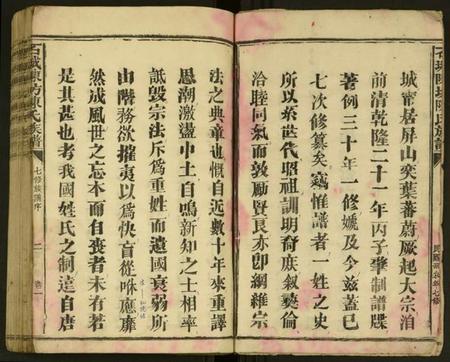 城甯居屏山奕葉蕃蔚厥起大宗洎
前清乾隆二十一年丙子肇制譜牒
著例三十年一修嬎及今玆蓋已
七次修纂矣竊惟譜者一姓之史
所以系世代昭祖訓明裔庶敘彝倫
洽睦同氣而敦勵賢良亦卽綱維宗
法之典章也慨自近數十年來重譯
思潮激盪中土自鳴新知之士相率
詆毀宗法斥爲重姓而遺國衰弱所
由階務欲摧夷以爲快盲從咻應靡
然成風世之忘本而自喪者未有若
是其甚也考我國姓氏之制遠自唐
石城陳坊陳氏族譜
七修族譜序
二